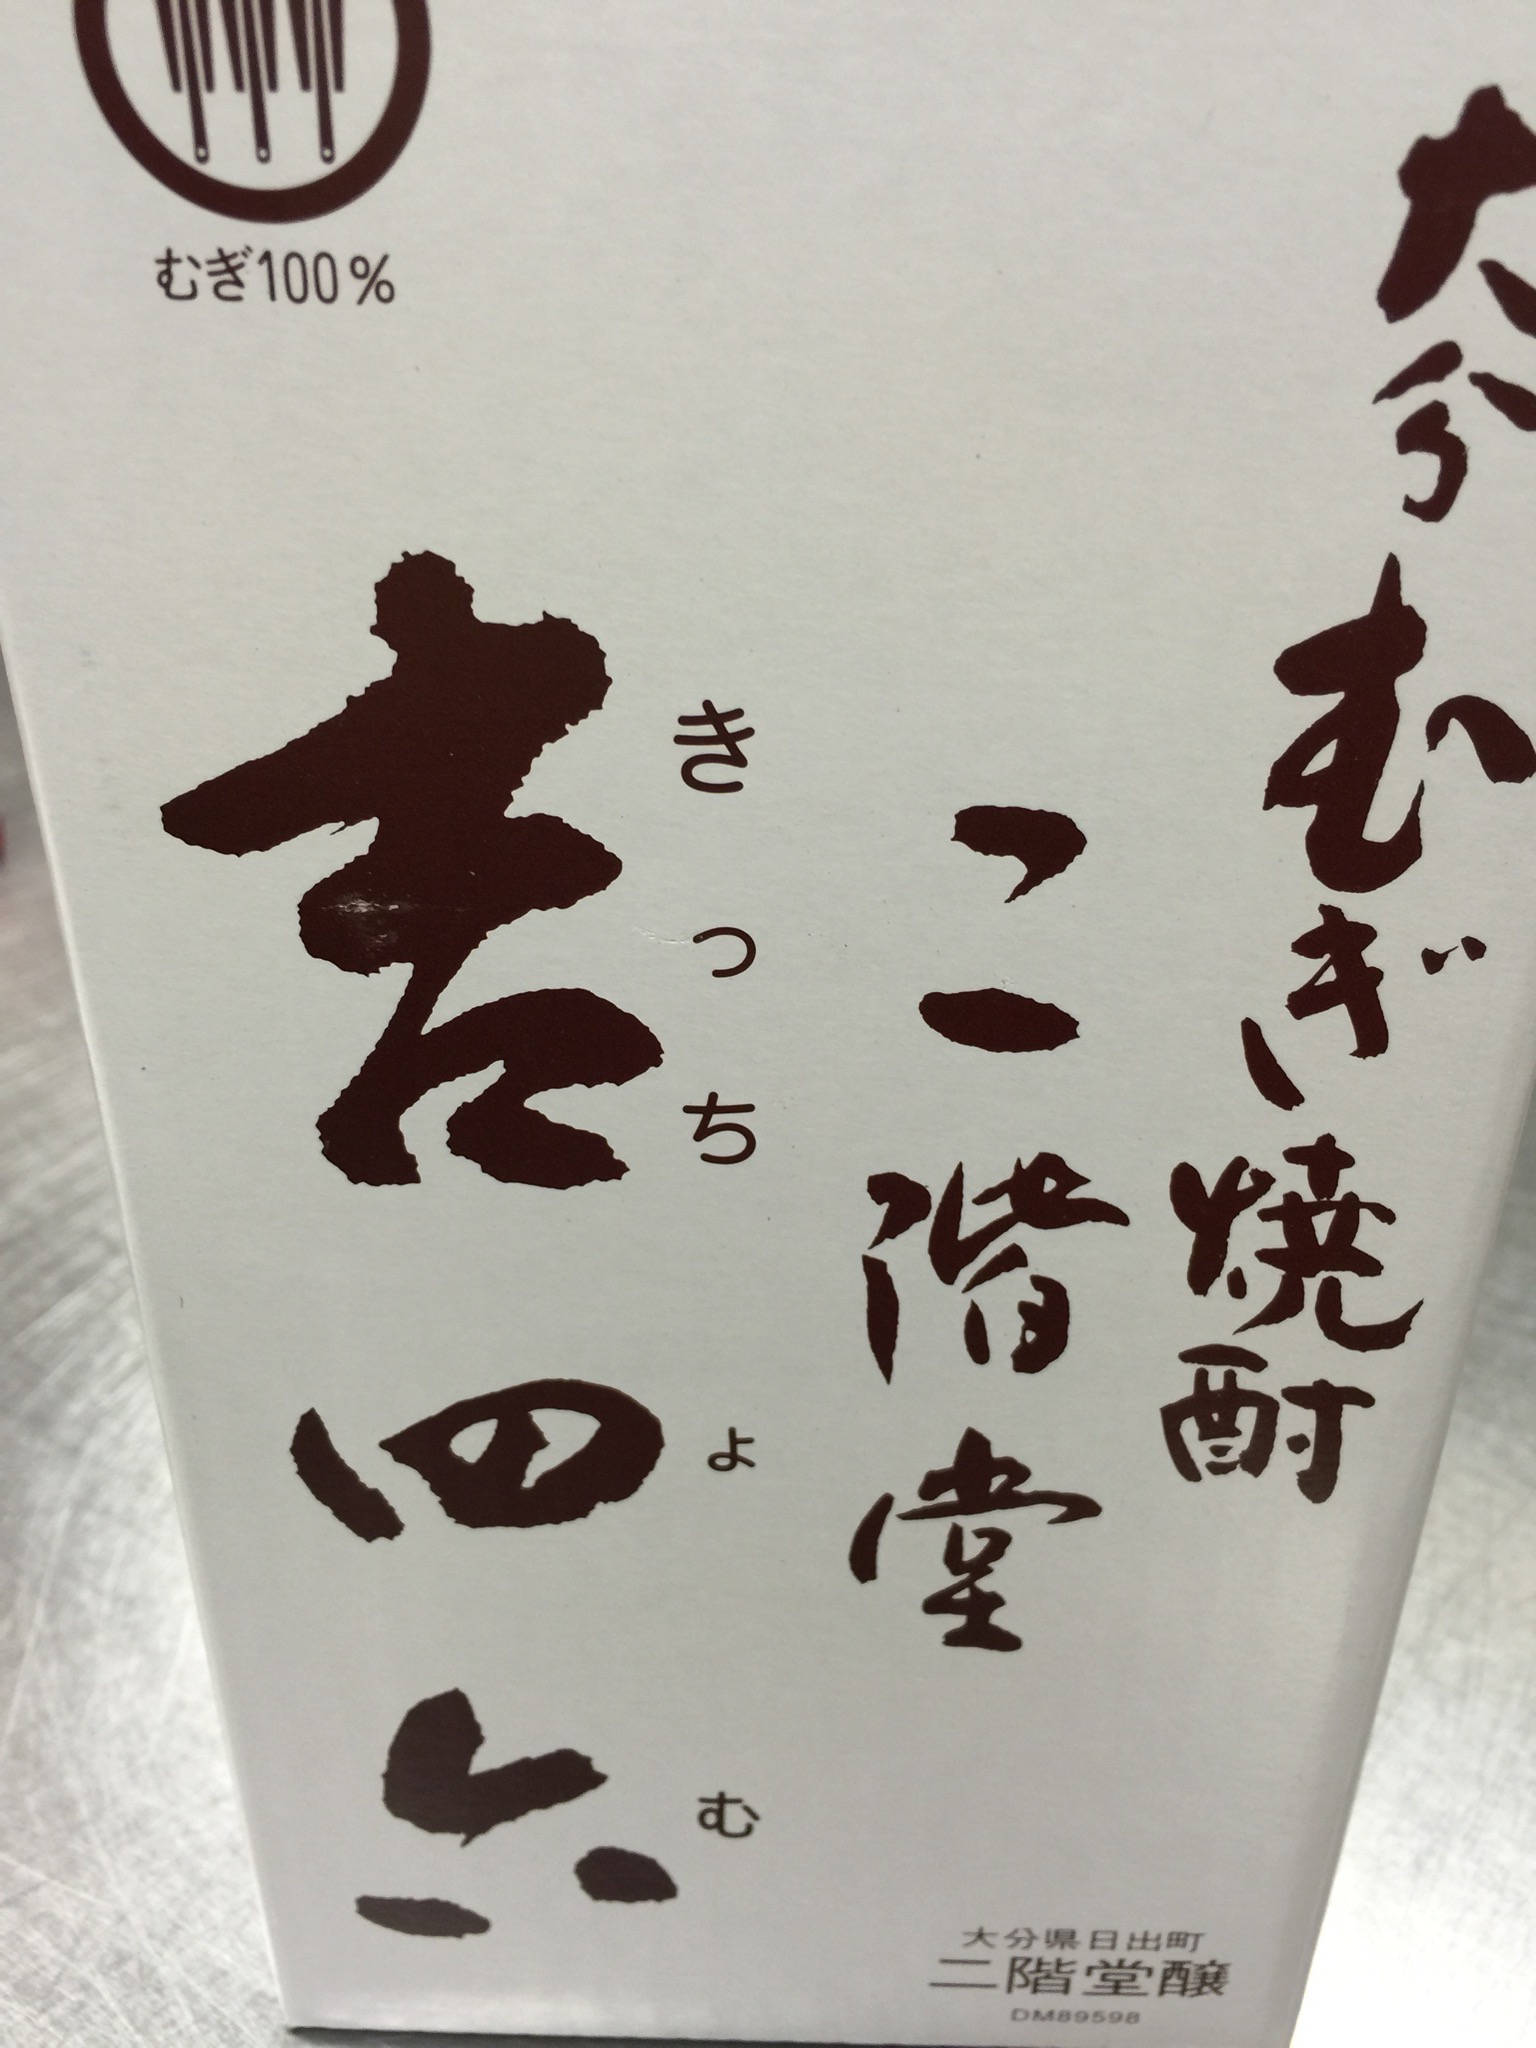 大分むぎ焼酎
二階堂
きっちょむ
吉四六
むぎ100%
大分県日出町
二階堂醸
DM89598